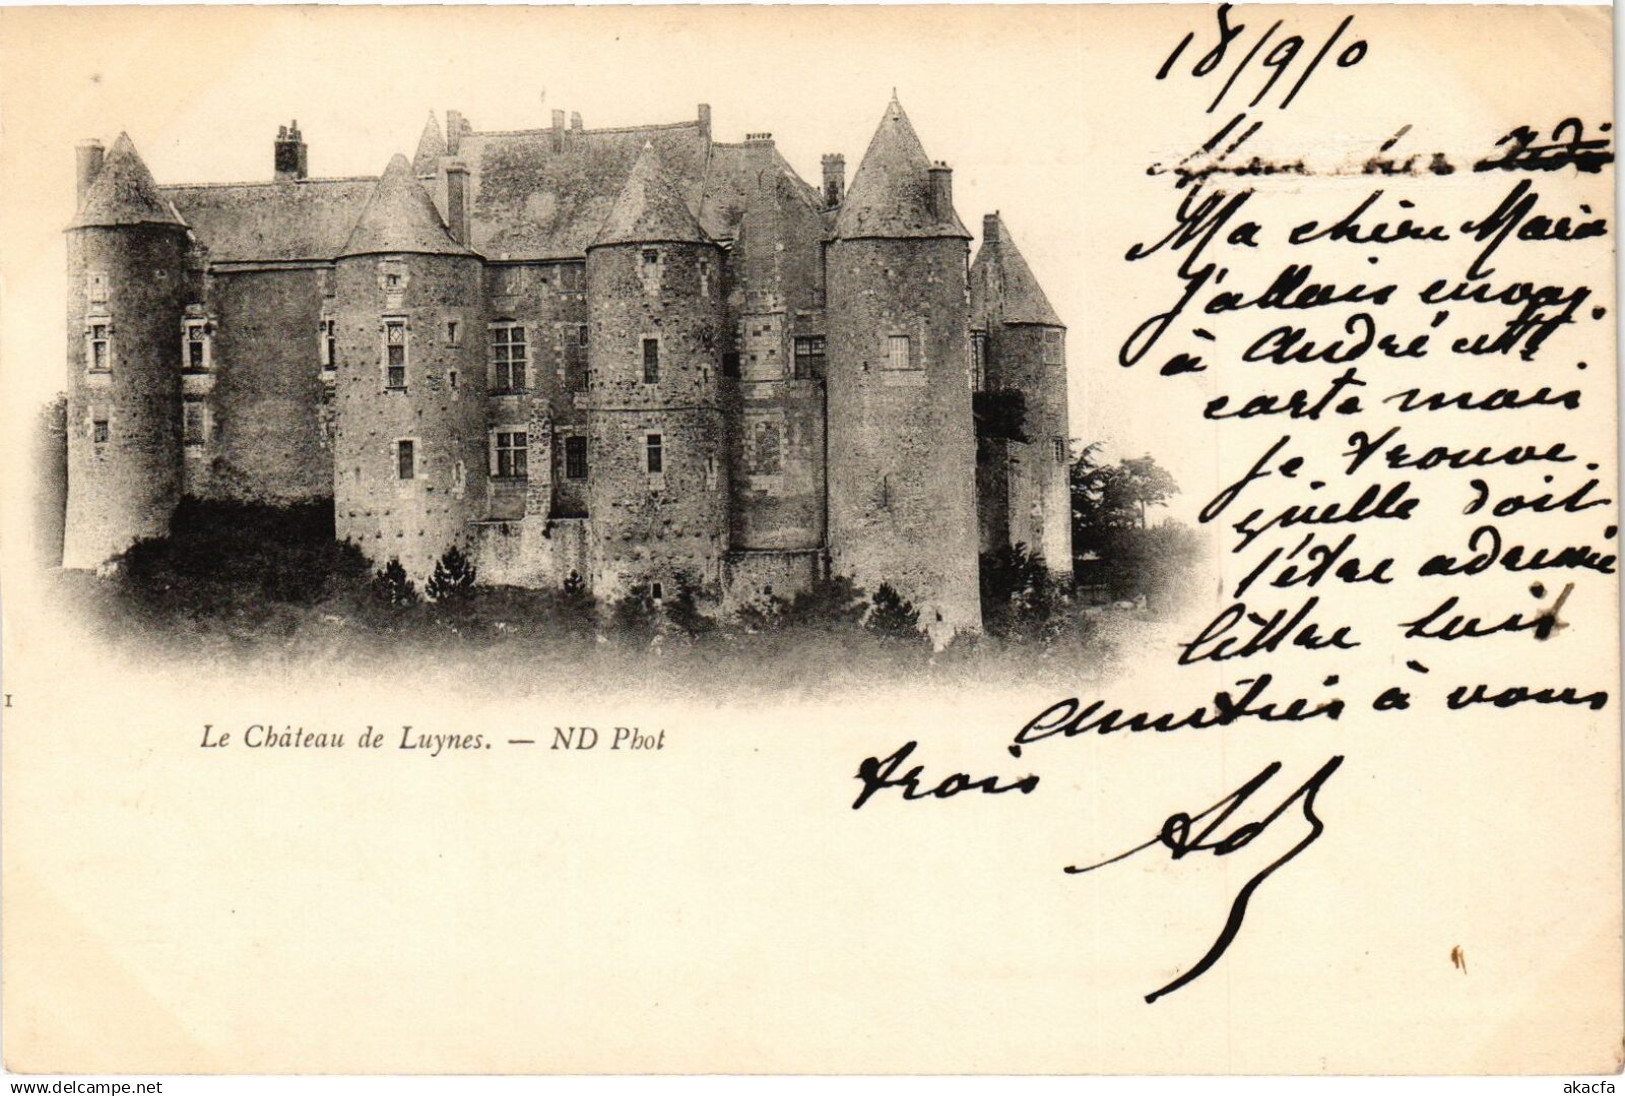 18/9/0
Mon cher André
Ma chère Marie
j'allais envoyer
à André cette
carte mais
je trouve
qu'elle doit
l'être adressée
lettre suit
Amitiés à vous
trois
1
Le Château de Luynes. — ND Phot
delcampe.net
akacfa